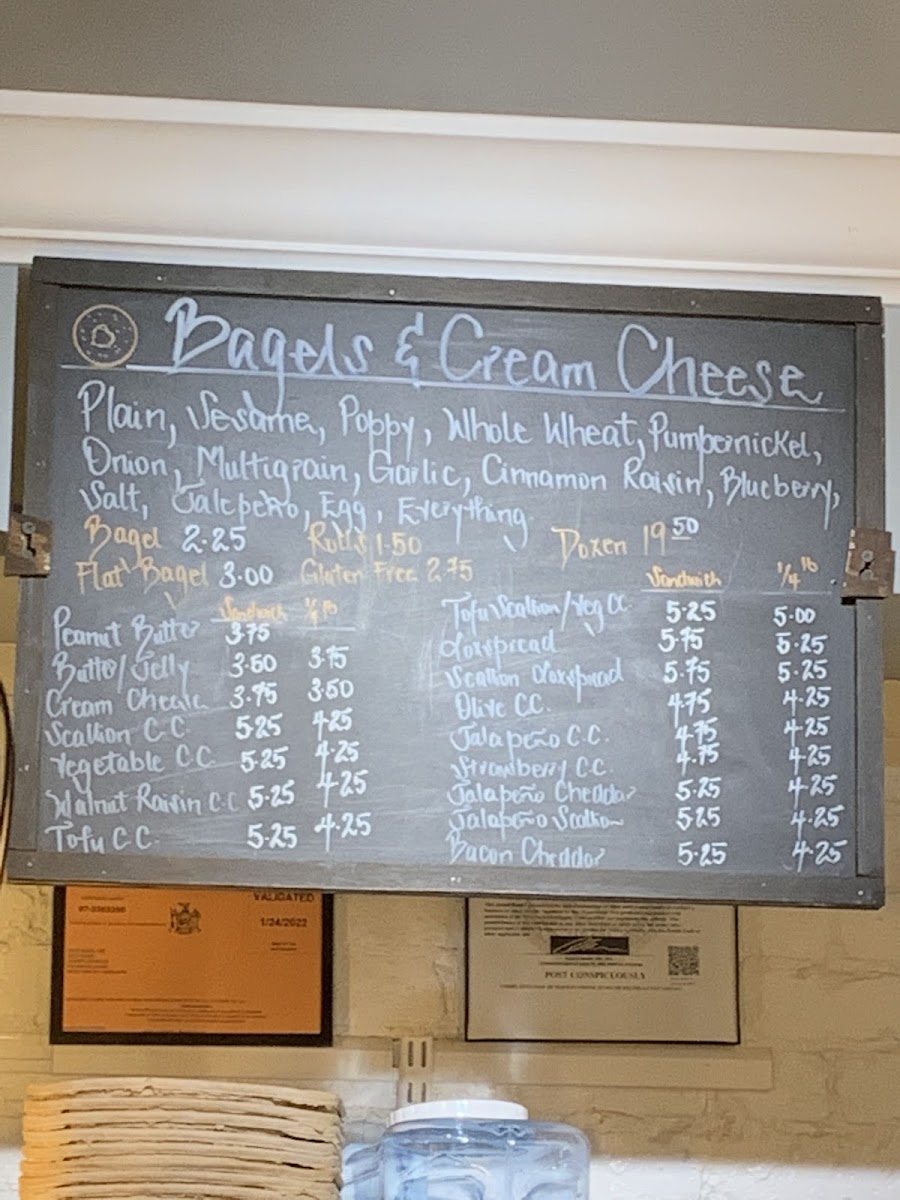 Bagels & Cream Cheese
Plain, Sesame, Poppy, Whole Wheat, Pumpernickel,
Onion, Multigrain, Garlic, Cinnamon Raisin, Blueberry,
Salt, Jalepeño, Egg, Everything
Bagel 2.25 Rolls 1.50 Dozen 19 50
Flat Bagel 3.00 Gluten Free 2.75
Sandwich 1/4 lb
Peanut Butter 3.75
Butter/Jelly 3.50 3.75
Cream Cheese 3.95 3.50
Scallion C.C. 5.25 4.25
Vegetable C.C. 5.25 4.25
Walnut Raisin C.C 5.25 4.25
Tofu C.C. 5.25 4.25
Sandwich 1/4 lb
Tofu Scallion/Veg CC 5.25 5.00
Loxspread 5.75 5.25
Scallion Loxspread 5.75 5.25
Olive C.C. 4.75 4.25
Jalapeño C.C. 4.75 4.25
Strawberry C.C. 4.75 4.25
Jalapeño Cheddar 5.25 4.25
Jalapeño Scallion 5.25 4.25
Bacon Cheddar 5.25 4.25
VALIDATED
1/24/2022
POST CONSPICUOUSLY